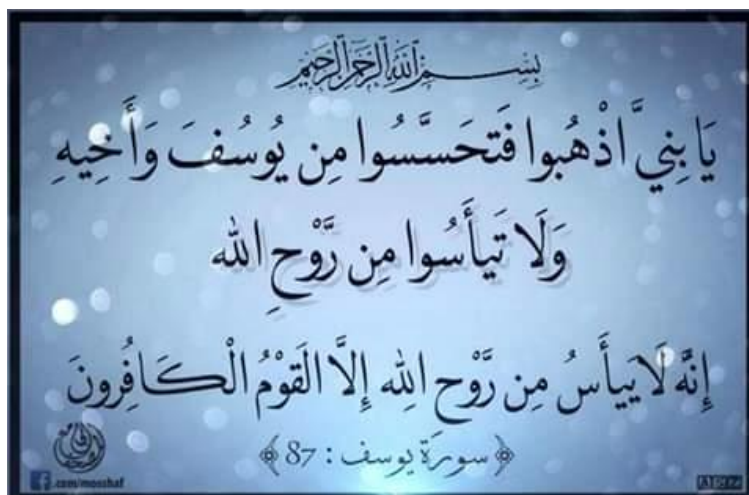 بسم الله الرحمن الرحيم
يَا بَنِيَّ اذْهَبُوا فَتَحَسَّسُوا مِن يُوسُفَ وَأَخِيهِ
وَلَا تَيْأَسُوا مِن رَّوْحِ الله
إِنَّهُ لَا يَيْأَسُ مِن رَّوْحِ الله إِلَّا الْقَوْمُ الْكَافِرُونَ
﴿سورة يوسف : 87﴾
.com/mosshaf